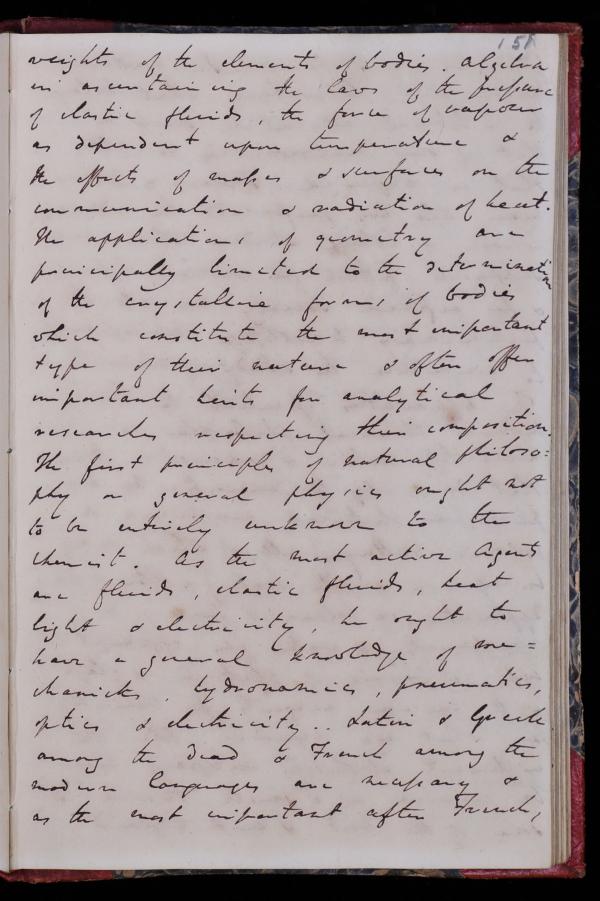 151
weights of the elements of bodies. algebra
in ascertaining the laws of the pressure
of elastic fluids, the force of vapour
as dependent upon temperature &
the effects of masses & surfaces on the
communication & radiation of heat.
The applications of geometry are
principally limited to the determination
of the crystalline forms of bodies
which constitute the most important
type of their nature & often offer
important hints for analytical
researches respecting their composition.
The first principles of natural philoso=
phy or general physics ought not
to be entirely unknown to the
chemist. As the most active Agents
are fluids, elastic fluids, heat
light & electricity, he ought to
have a general knowledge of me=
chanicks, hydronamics, pneumatics,
optics & electricity.. Latin & Greek
among the Dead & French among the
modern languages are necessary &
as the most important after French,